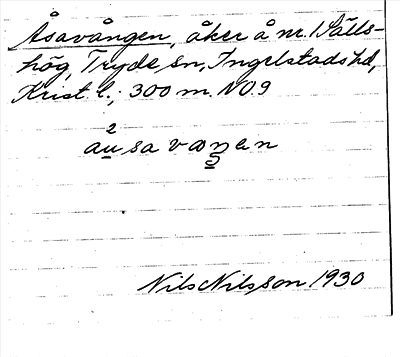 Åsavången, åker å nr. 1 Sälls-
hög, Tryde sn, Ingelstads hd,
Krist. l.; 300 m. NO 9
2
ausavaŋen
Nils Nilsson 1930